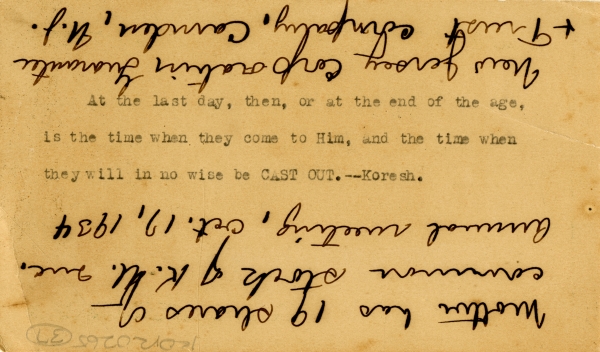 At the last day, then, or at the end of the age,
is the time when they come to Him, and the time when
they will in no wise be CAST OUT.--Koresh.
Mother has 19 shares of
common stock of K. U. Inc.
Annual meeting, Oct. 17, 1934
New Jersey Corporation Guarantee
+ Trust Company, Camden, N.J.
37